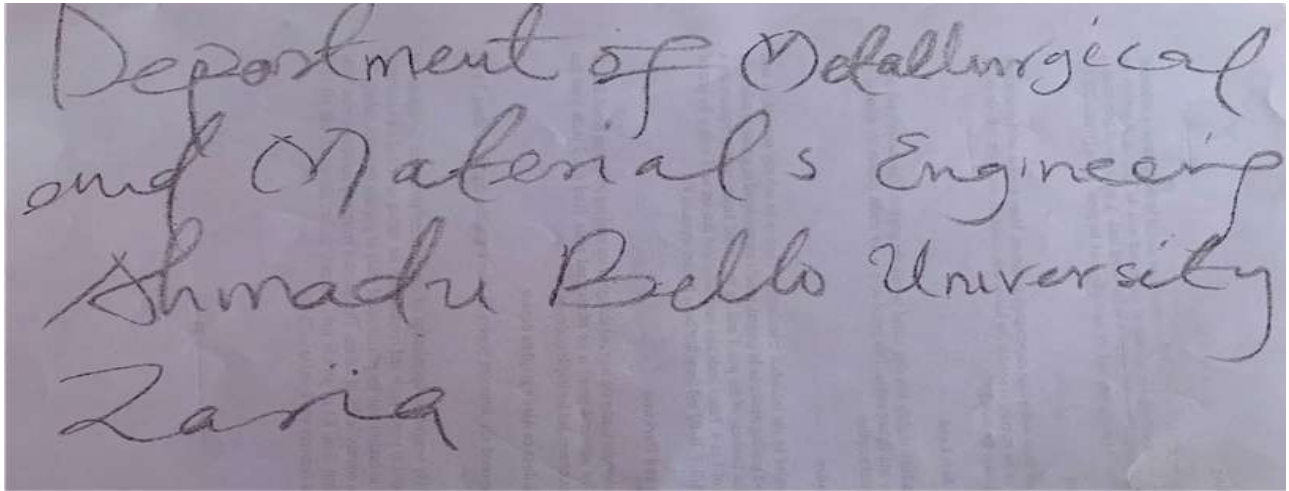 Department of Metallurgical
and Materials Engineering
Ahmadu Bello University
Zaria